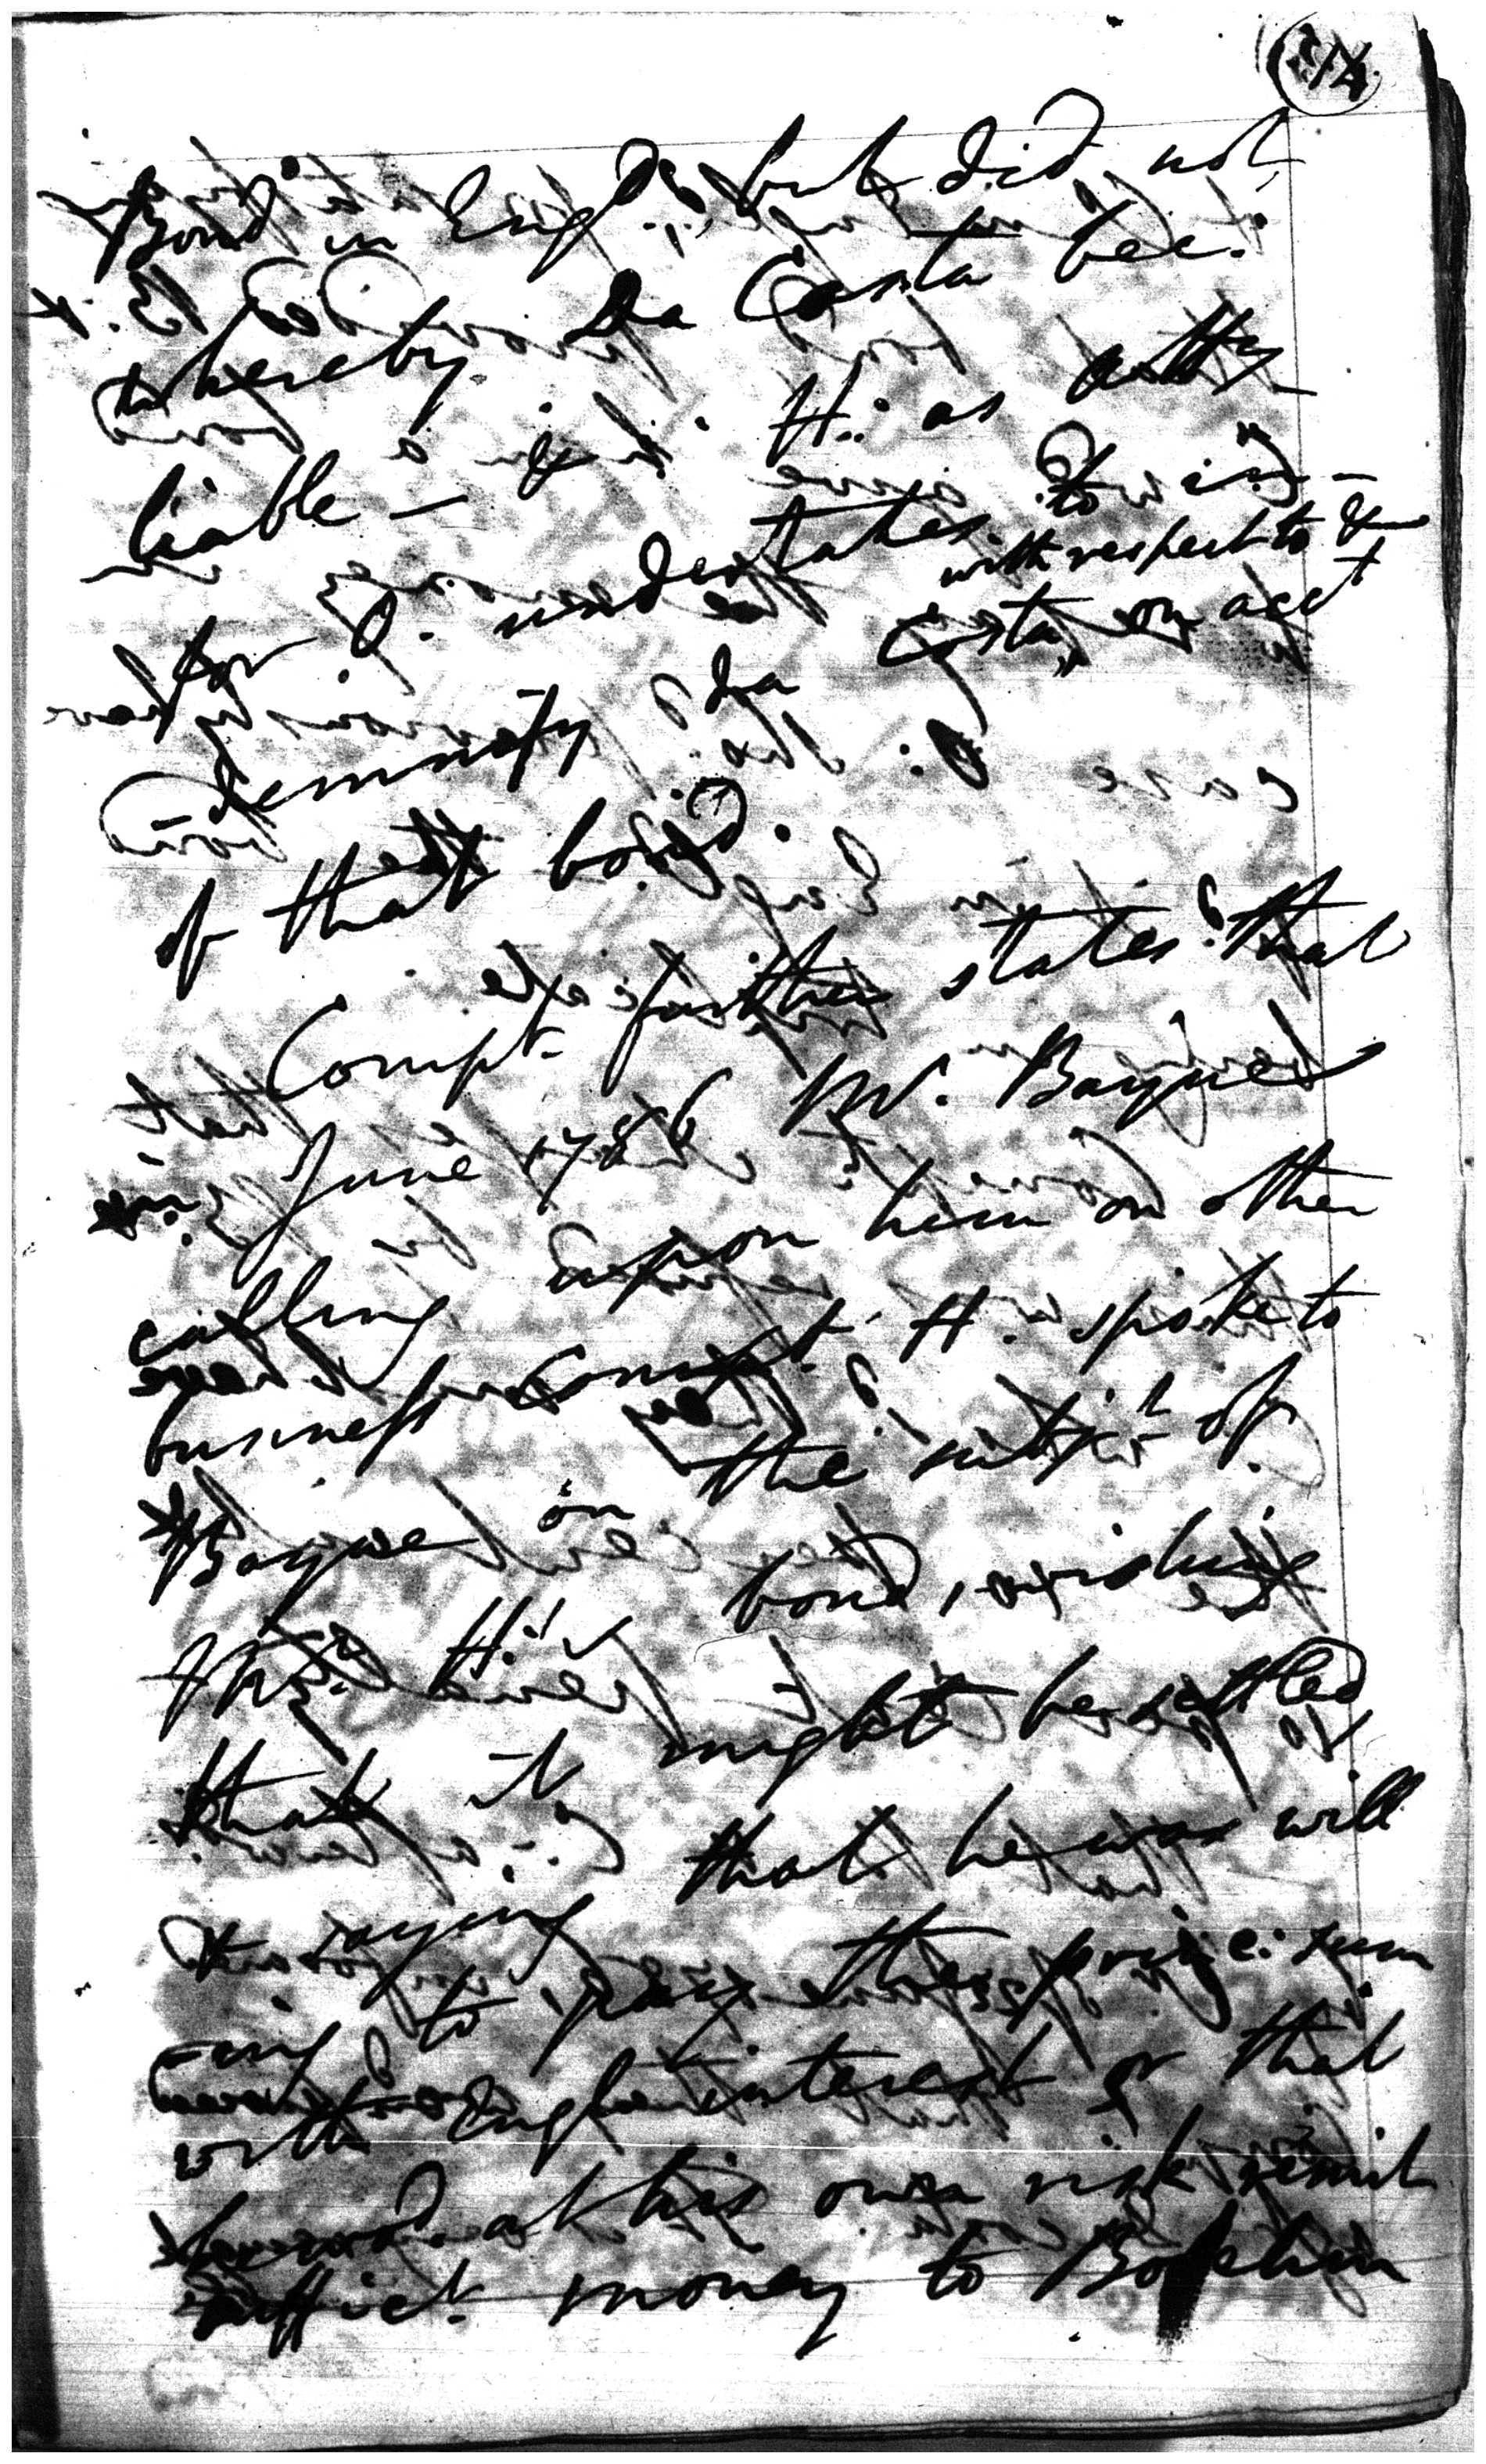 Bond in Engd. but did not
thereby Da Costa bec.
liable — & H. as atty
for O. undertakes to in-
with respect to &
demnify Da Costa, on acct
of that bond.
Compt. further states that
in June 1786 Mr. Bayne
calling upon him on other
business Compt. H. spoke to
Bayne on the subjt. of
Mr. H.'s bond, wishing
that it might be settled
saying that he was will
-ing to pay the princ: sum
with Engl. interest or that
he wod. at his own risk remit
suffict. money to